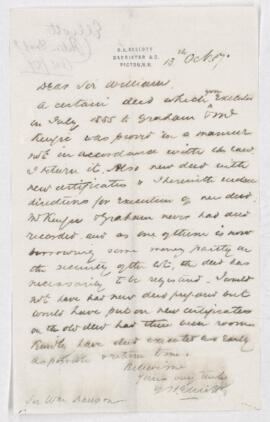 D. C. ELLIOTT
BARRISTER &C.
PICTOU, N.S.
13th Oct
Dear Sir William
A certain deed which you executed
in July 1885 to Graham & Mc
Kenzie was proved in a manner
not in accordance with the law
I return it. Also new deed with
new certificates & I herewith enclose
directions for execution of new deed.
McKenzie & Graham never had deed
recorded and as one of them is now
borrowing some money partly on
the security of the lot, the deed has
necessarily to be registered. I would
not have had new deed prepared but
would have put on new certificates
on the old deed had there been room
Kindly have deed executed as early
as possible & return to me.
Believe me
Yours very truly
Elliott
Sir Wm Dawson